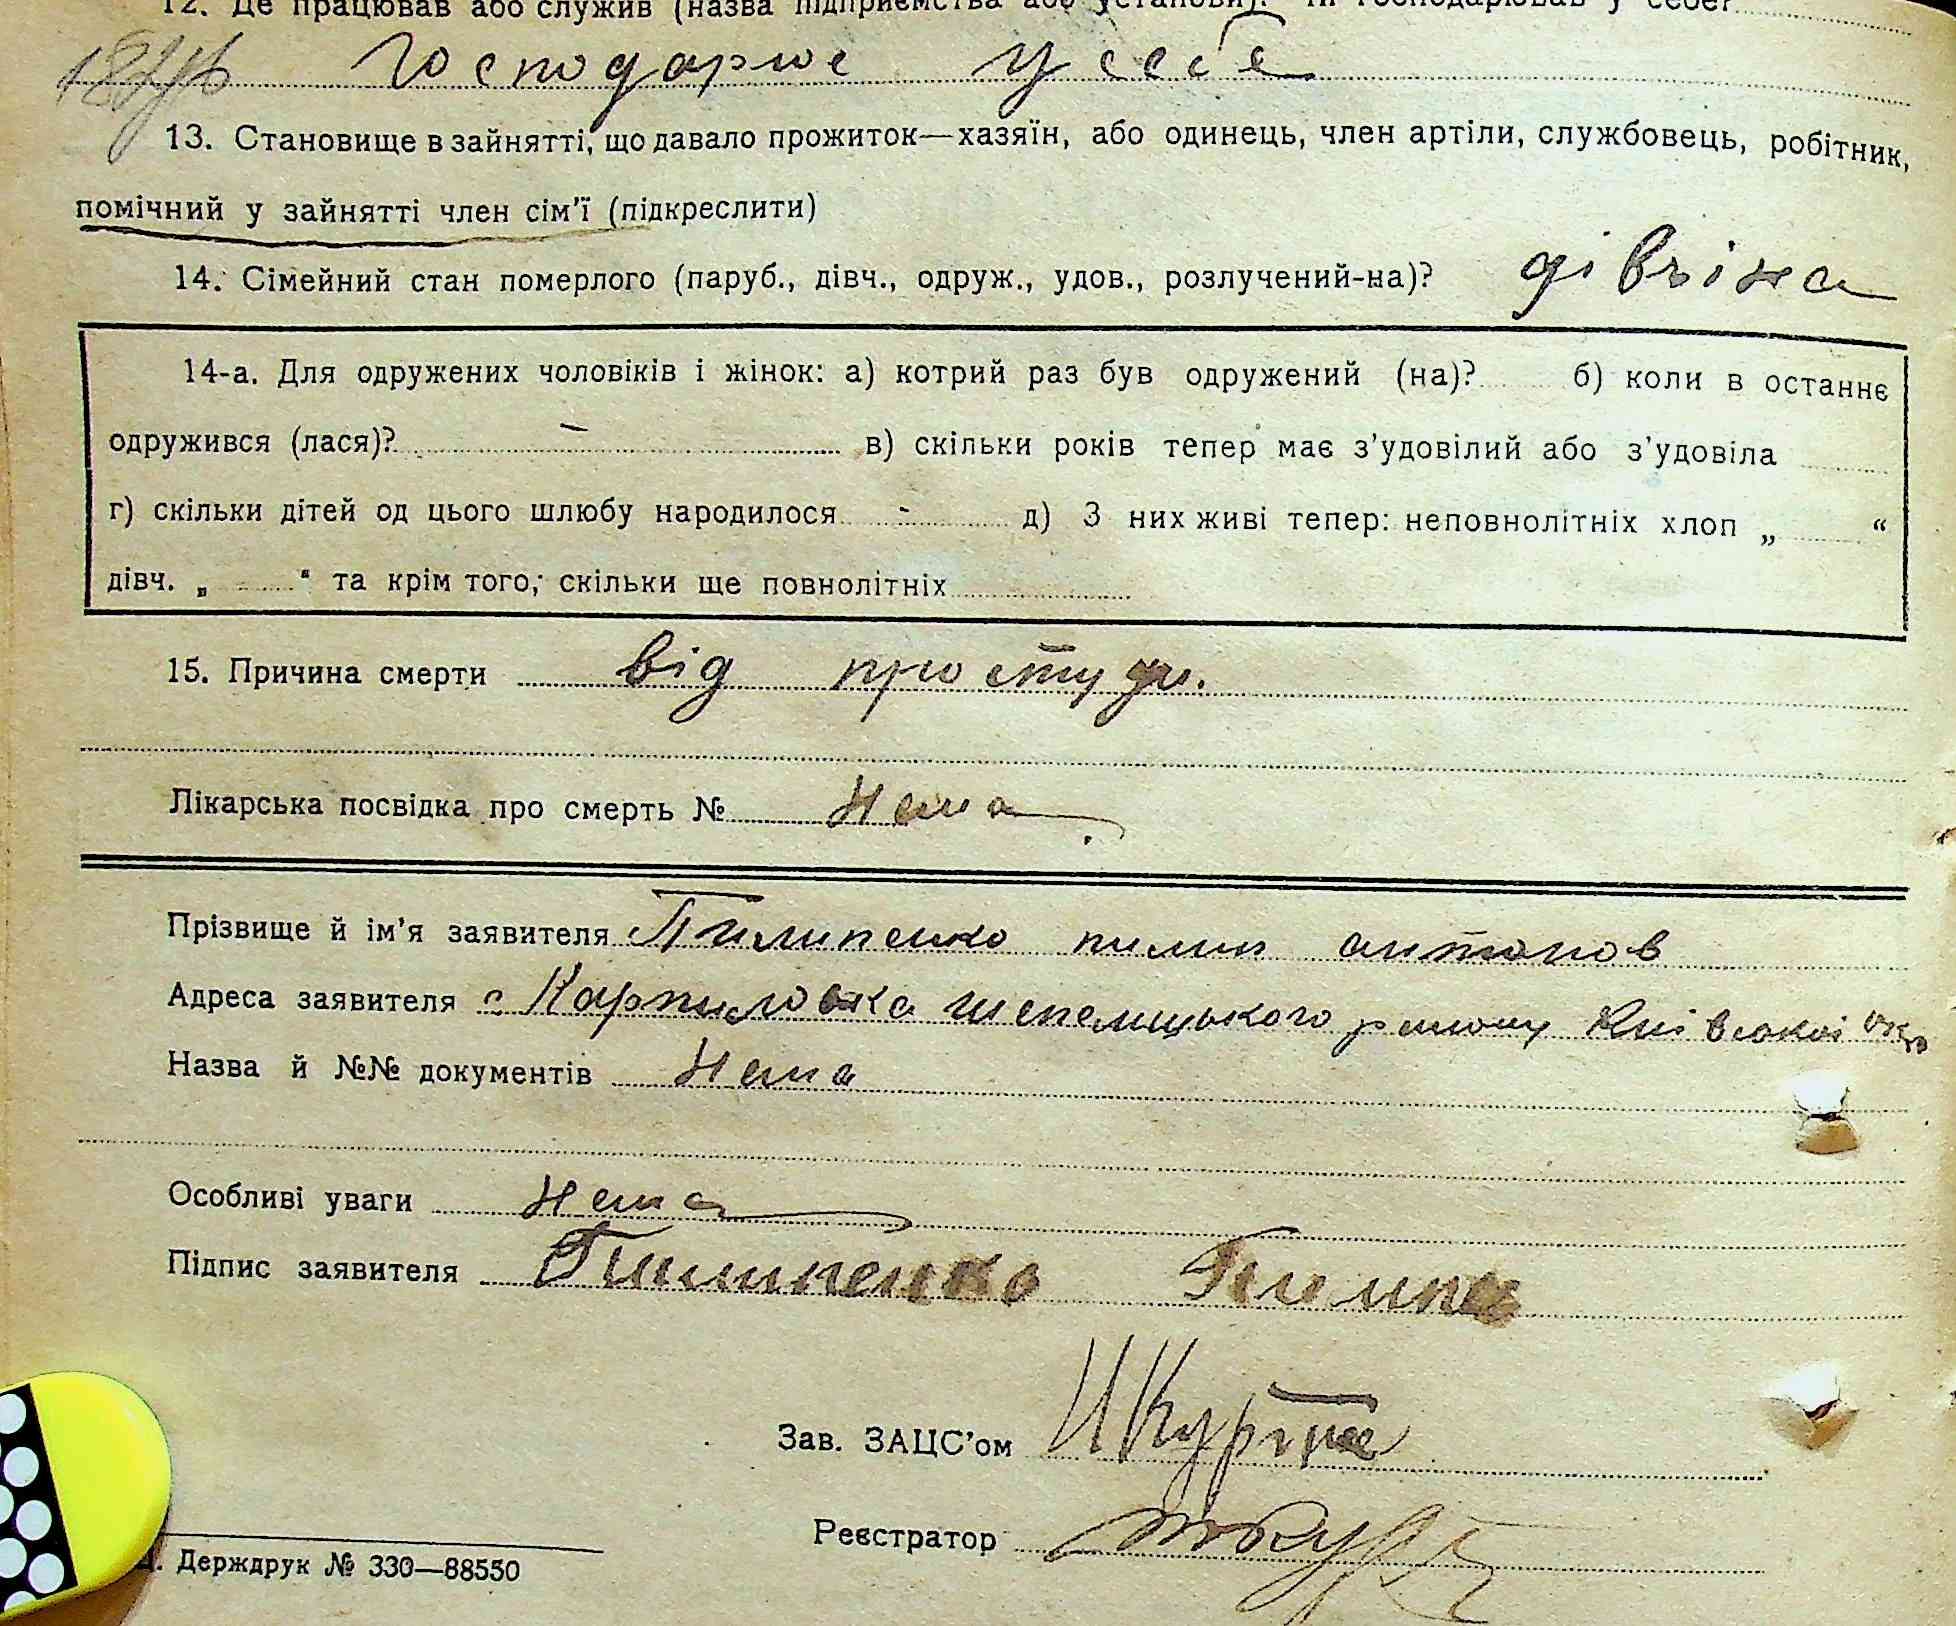 12. Де працював або служив (назва підприємства або установи). Чи господарював у себе?
Господарює у себе
13. Становище в зайнятті, що давало прожиток—хазяїн, або одинець, член артіли, службовець, робітник,
помічний у зайнятті член сім'ї (підкреслити)
14. Сімейний стан померлого (паруб., дівч., одруж., удов., розлучений-на)? дівчіна
14-а. Для одружених чоловіків і жінок: а) котрий раз був одружений (на)? б) коли в останнє
одружився (лася)? — в) скільки років тепер має з'удовілий або з'удовіла
г) скільки дітей од цього шлюбу народилося - д) З них живі тепер: неповнолітніх хлоп „ “
дівч. „ “ та крім того, скільки ще повнолітніх
15. Причина смерти від простуди.
Лікарська посвідка про смерть № Нема
Прізвище й ім'я заявителя Пилипенко пилип антонов
Адреса заявителя с Карпиловка шепелицького району Київської окр
Назва й №№ документів Нема
Особливі уваги Нема
Підпис заявителя Пилипенко Пилип
Зав. ЗАЦС'ом
Реєстратор
Держдрук № 330—88550